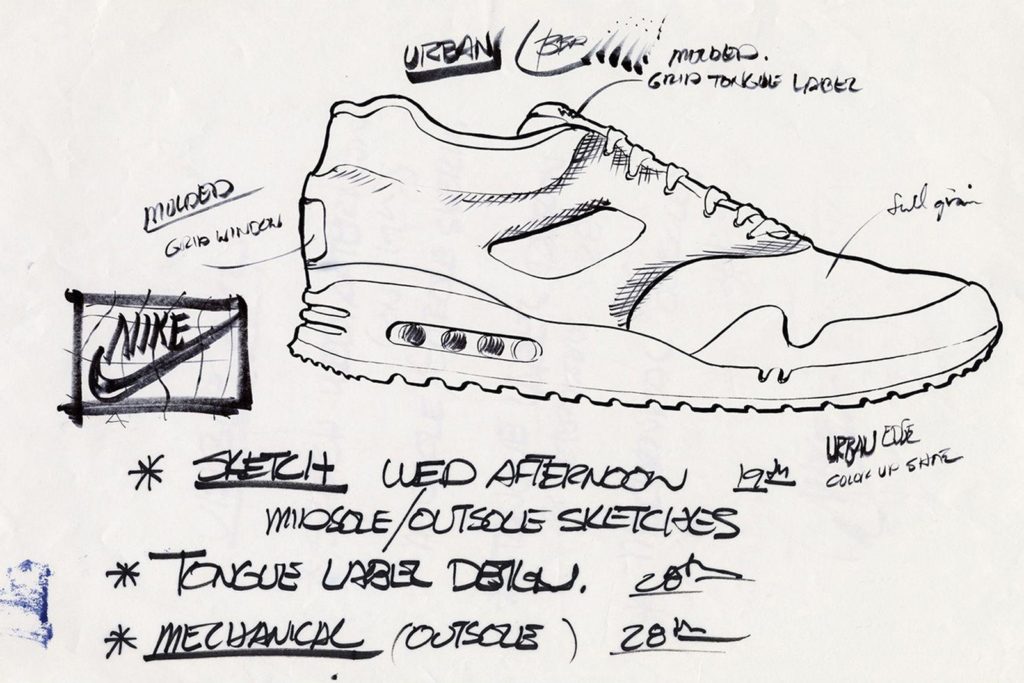 URBAN
MOLDED.
GRID TONGUE LABEL
MOLDED
GRID WINDOW
full grain
NIKE
URBAN EDGE
COLOR UP SHOE
* SKETCH WED AFTERNOON 19th
MIDSOLE/OUTSOLE SKETCHES
* TONGUE LABEL DESIGN. 28th
* MECHANICAL (OUTSOLE) 28th